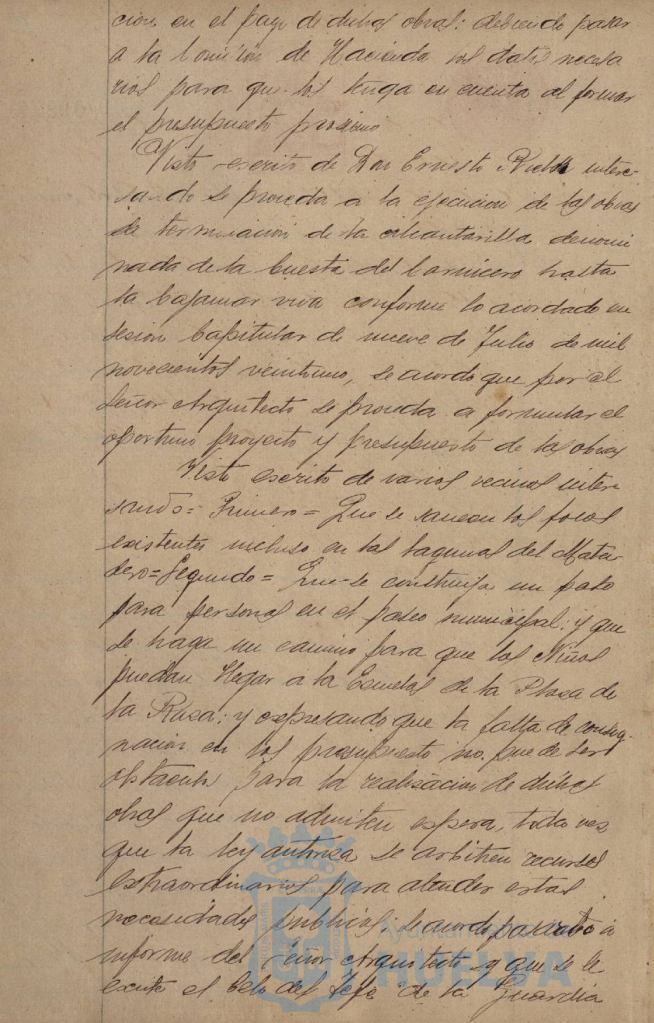 cion en el pago de dichas obras: debiendo pasar
a la Comision de Hacienda los datos necesa
rios para que los tenga en cuenta al formar
el presupuesto proximo
Visto escrito de Don Ernesto intere-
sando se proceda a la ejecucion de las obras
de terminacion de la alcantarilla denomi
nada de la Cuesta del Carnicero hasta
la bajamar viva conforme lo acordado en
sesion Capitular de nueve de Julio de mil
novecientos veintiuno, se acordo que por el
Señor Arquitecto se proceda a formular el
oportuno proyecto y presupuesto de las obras
Visto escrito de varios vecinos intere
sando = Primero = Que se saneen los focos
existentes incluso en las lagunas del Mata-
dero = Segundo = Que se construya un paso
para personas en el paseo municipal: y que
se haga un camino para que los Niños
puedan llegar a la Escuelas de la Plaza de
la Rusa: y expresando que la falta de consig-
nacion en los presupuesto no puede ser
obstaculo para la realizacion de dichas
obras que no admiten espera, toda vez
que la ley autoriza se arbitren recursos
extraordinarios para atender estas
necesidades publicas: se acordo pasarlo a
informe del Señor Arquitecto y que se le
excite el celo del Jefe de la Guardia
HUELVA